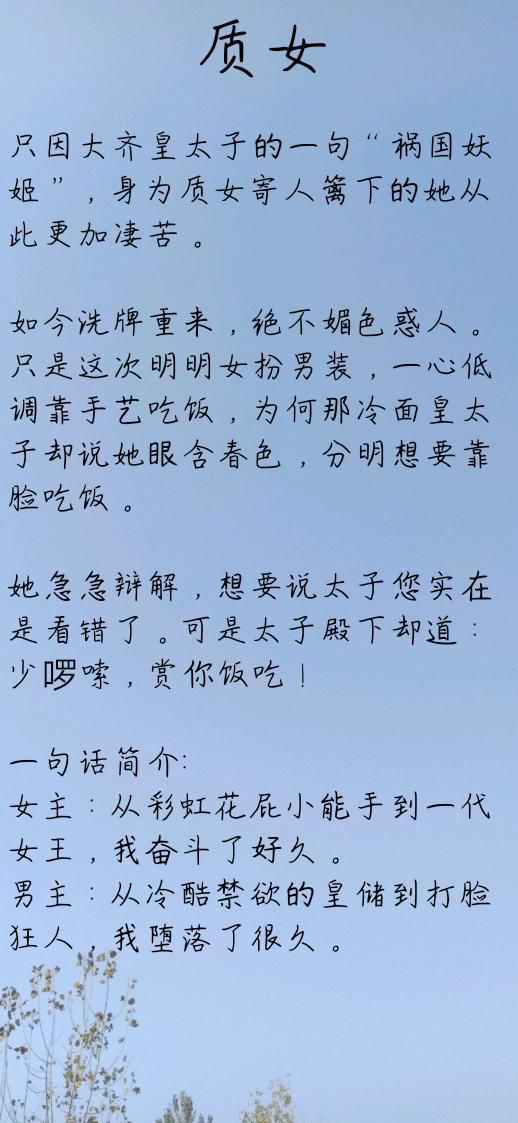 质女
只因大齐皇太子的一句“祸国妖
姬”，身为质女寄人篱下的她从
此更加凄苦。
如今洗牌重来，绝不媚色惑人。
只是这次明明女扮男装，一心低
调靠手艺吃饭，为何那冷面皇太
子却说她眼含春色，分明想要靠
脸吃饭。
她急急辩解，想要说太子您实在
是看错了。可是太子殿下却道：
少啰嗦，赏你饭吃！
一句话简介:
女主：从彩虹花屁小能手到一代
女王，我奋斗了好久。
男主：从冷酷禁欲的皇储到打脸
狂人，我堕落了很久。